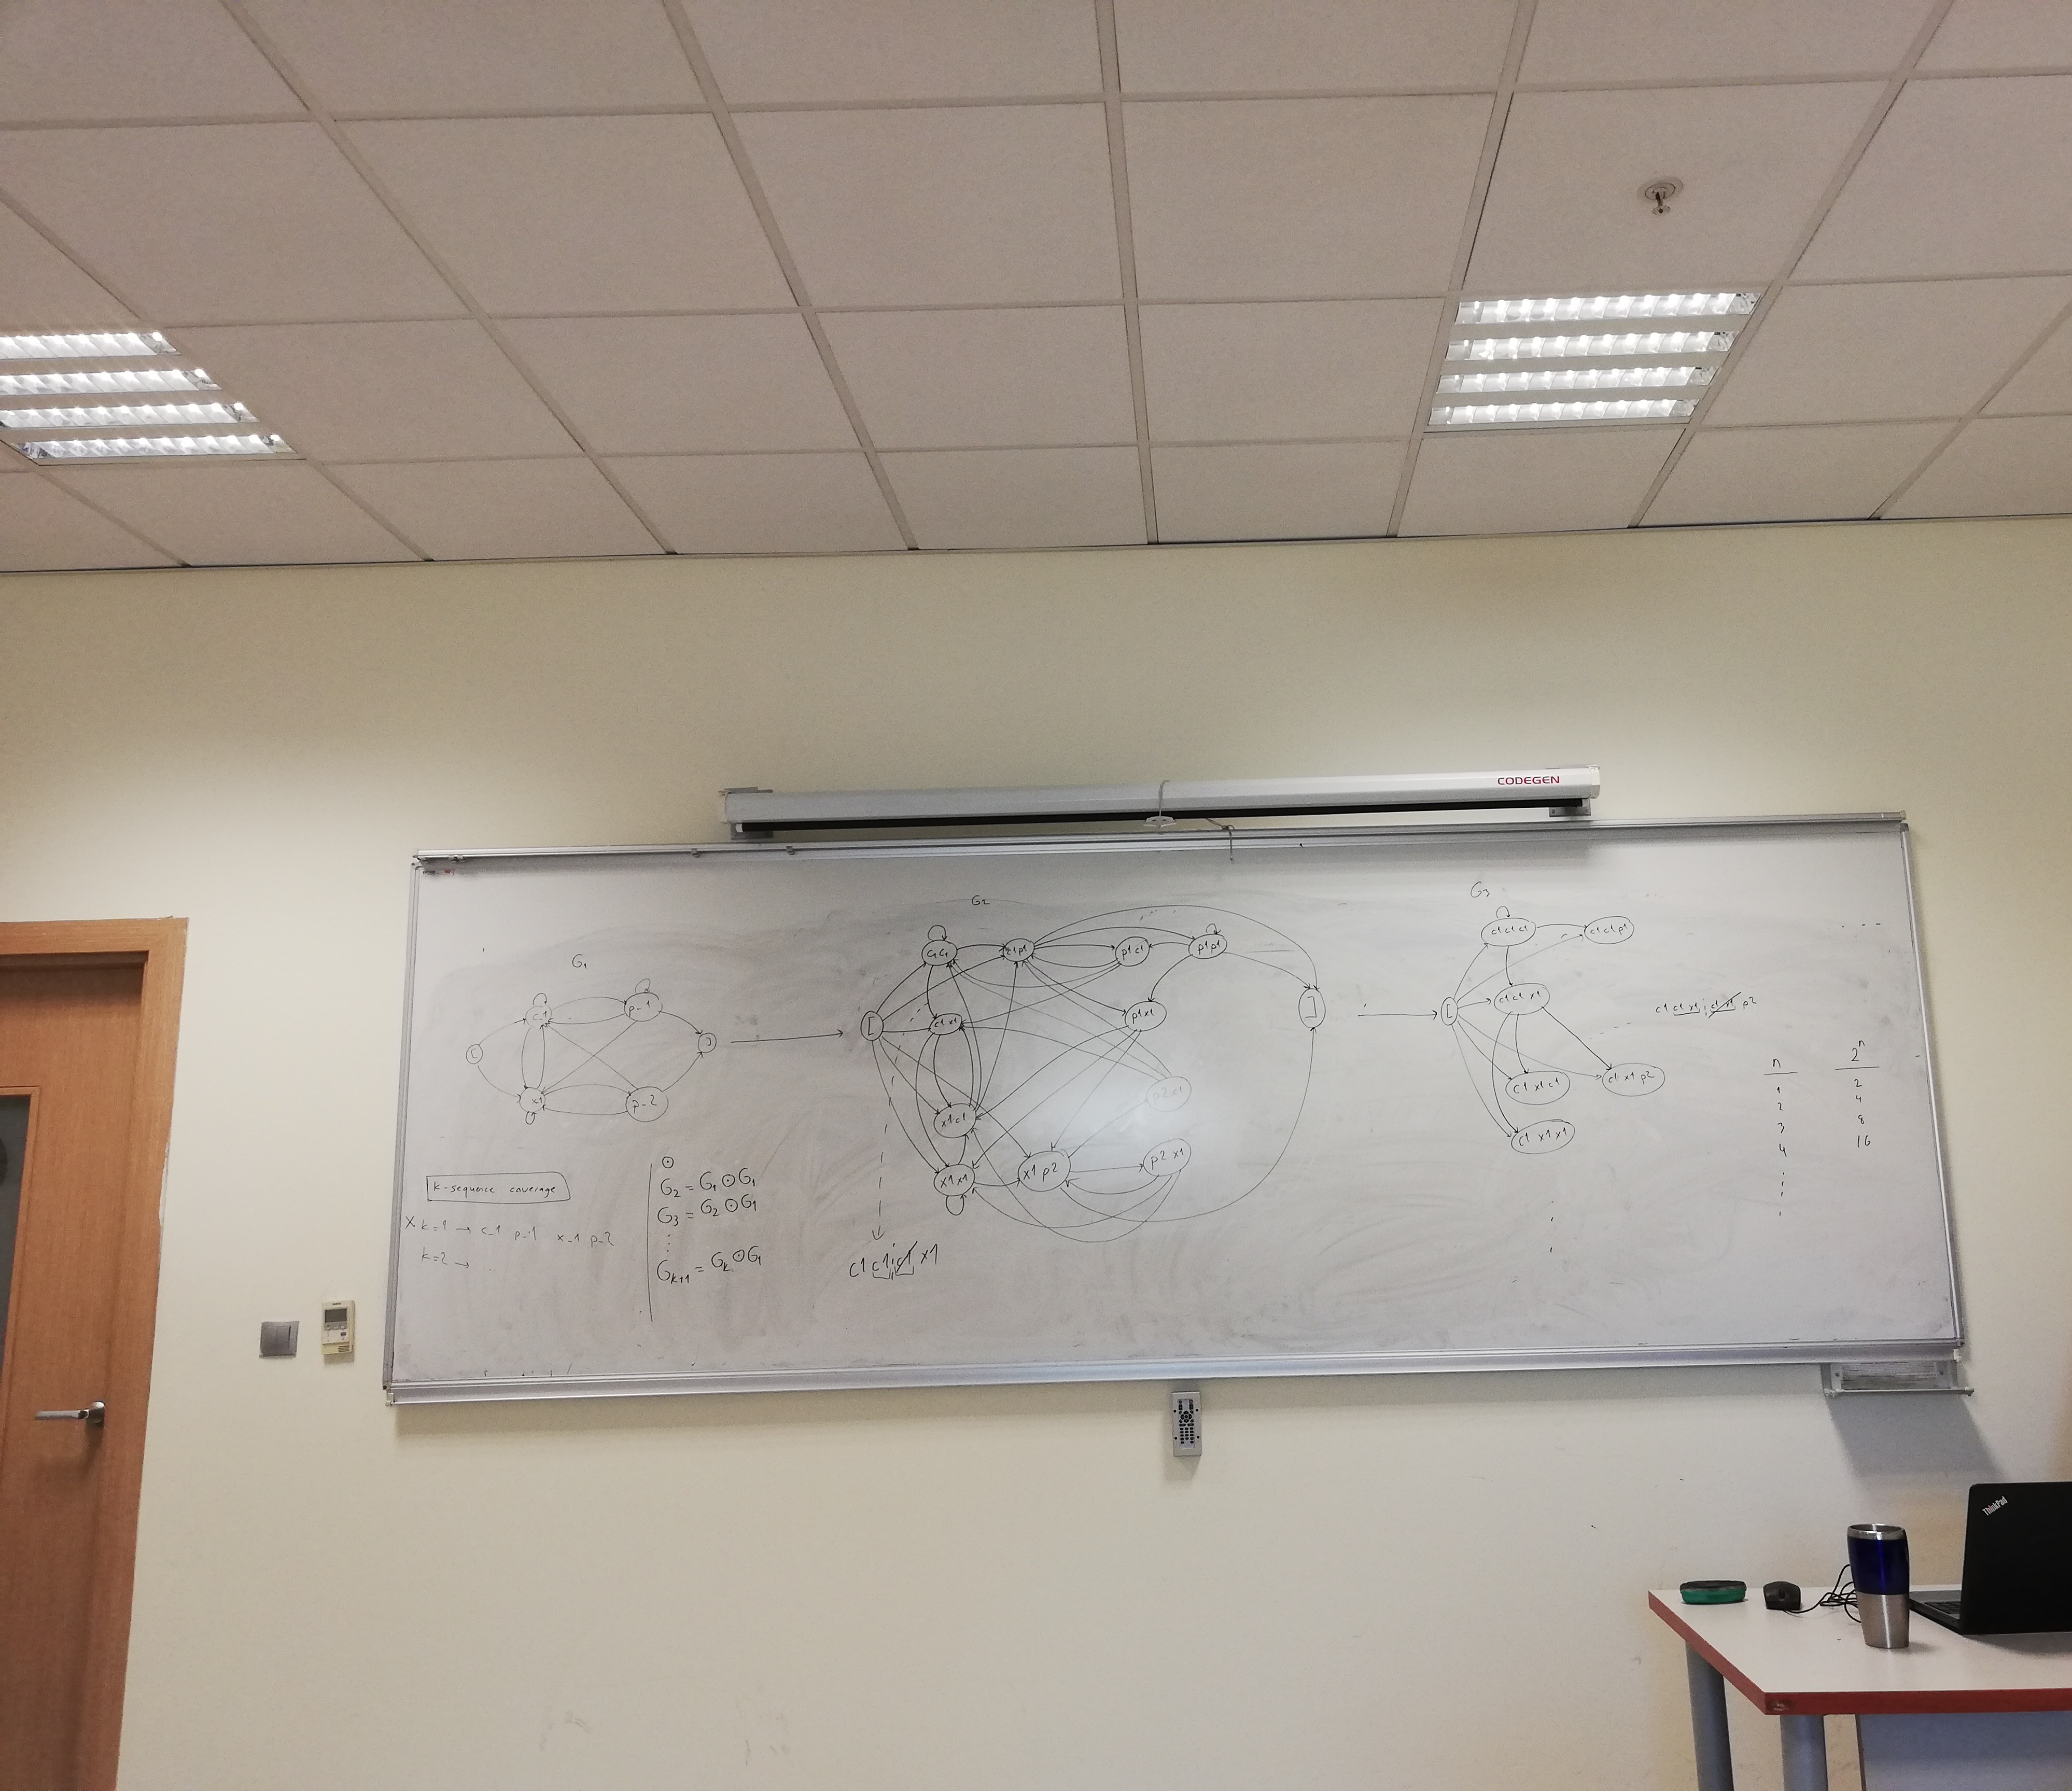 CODEGEN
G1
c_1
p_1
[
]
x_1
p_2
k-sequence coverage
X k=1 → c_1 p_1 x_1 p_2
k=2 → ..
⊙
G2 = G1 ⊙ G1
G3 = G2 ⊙ G1
Gk+1 = Gk ⊙ G1
G2
c1c1
c1p1
p1c1
p1p1
[
c1x1
p1x1
]
p2c1
x1c1
x1x1
x1p2
p2x1
c1 c1 ; c1 x1
G3
c1c1c1
c1c1p1
[
c1c1x1
c1x1c1
c1x1p2
c1x1x1
c1 c1 x1 ; c1 x1 p2
n 2^n
1 2
2 4
3 8
4 16
ThinkPad